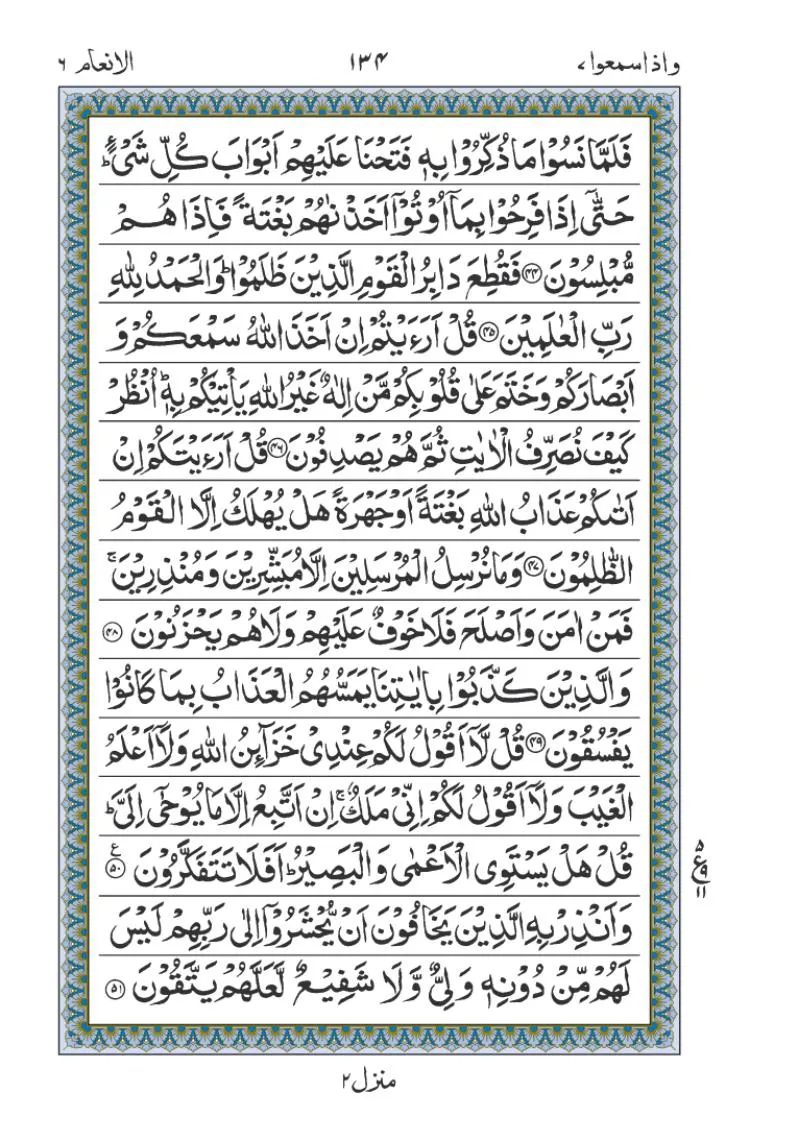 واذاسمعوا ٧
١٣٤
الانعام ٦
فَلَمَّا نَسُوْا مَا ذُكِّرُوْا بِهٖ فَتَحْنَا عَلَيْهِمْ اَبْوَابَ كُلِّ شَيْءٍ ؕ
حَتّٰۤى اِذَا فَرِحُوْا بِمَاۤ اُوْتُوْۤا اَخَذْنٰهُمْ بَغْتَةً فَاِذَا هُمْ
مُّبْلِسُوْنَ ﴿۴۴﴾ فَقُطِعَ دَابِرُ الْقَوْمِ الَّذِيْنَ ظَلَمُوْا ؕ وَالْحَمْدُ لِلّٰهِ
رَبِّ الْعٰلَمِيْنَ ﴿۴۵﴾ قُلْ اَرَءَيْتُمْ اِنْ اَخَذَ اللّٰهُ سَمْعَكُمْ وَ
اَبْصَارَكُمْ وَخَتَمَ عَلٰى قُلُوْبِكُمْ مَّنْ اِلٰهٌ غَيْرُ اللّٰهِ يَاْتِيْكُمْ بِهٖ ؕ اُنْظُرْ
كَيْفَ نُصَرِّفُ الْاٰيٰتِ ثُمَّ هُمْ يَصْدِفُوْنَ ﴿۴۶﴾ قُلْ اَرَءَيْتَكُمْ اِنْ
اَتٰىكُمْ عَذَابُ اللّٰهِ بَغْتَةً اَوْ جَهْرَةً هَلْ يُهْلَكُ اِلَّا الْقَوْمُ
الظّٰلِمُوْنَ ﴿۴۷﴾ وَمَا نُرْسِلُ الْمُرْسَلِيْنَ اِلَّا مُبَشِّرِيْنَ وَمُنْذِرِيْنَ ۚ
فَمَنْ اٰمَنَ وَاَصْلَحَ فَلَا خَوْفٌ عَلَيْهِمْ وَلَا هُمْ يَحْزَنُوْنَ ﴿۴۸﴾
وَالَّذِيْنَ كَذَّبُوْا بِاٰيٰتِنَا يَمَسُّهُمُ الْعَذَابُ بِمَا كَانُوْا
يَفْسُقُوْنَ ﴿۴۹﴾ قُلْ لَّاۤ اَقُوْلُ لَكُمْ عِنْدِيْ خَزَآئِنُ اللّٰهِ وَلَاۤ اَعْلَمُ
الْغَيْبَ وَلَاۤ اَقُوْلُ لَكُمْ اِنِّيْ مَلَكٌ ۚ اِنْ اَتَّبِعُ اِلَّا مَا يُوْحٰۤى اِلَيَّ ؕ
قُلْ هَلْ يَسْتَوِي الْاَعْمٰى وَالْبَصِيْرُ ؕ اَفَلَا تَتَفَكَّرُوْنَ ﴿۵۰﴾ ع
۵ ع ۹ ۱۱
وَاَنْذِرْ بِهِ الَّذِيْنَ يَخَافُوْنَ اَنْ يُّحْشَرُوْۤا اِلٰى رَبِّهِمْ لَيْسَ
لَهُمْ مِّنْ دُوْنِهٖ وَلِيٌّ وَّلَا شَفِيْعٌ لَّعَلَّهُمْ يَتَّقُوْنَ ﴿۵۱﴾
منزل ٢